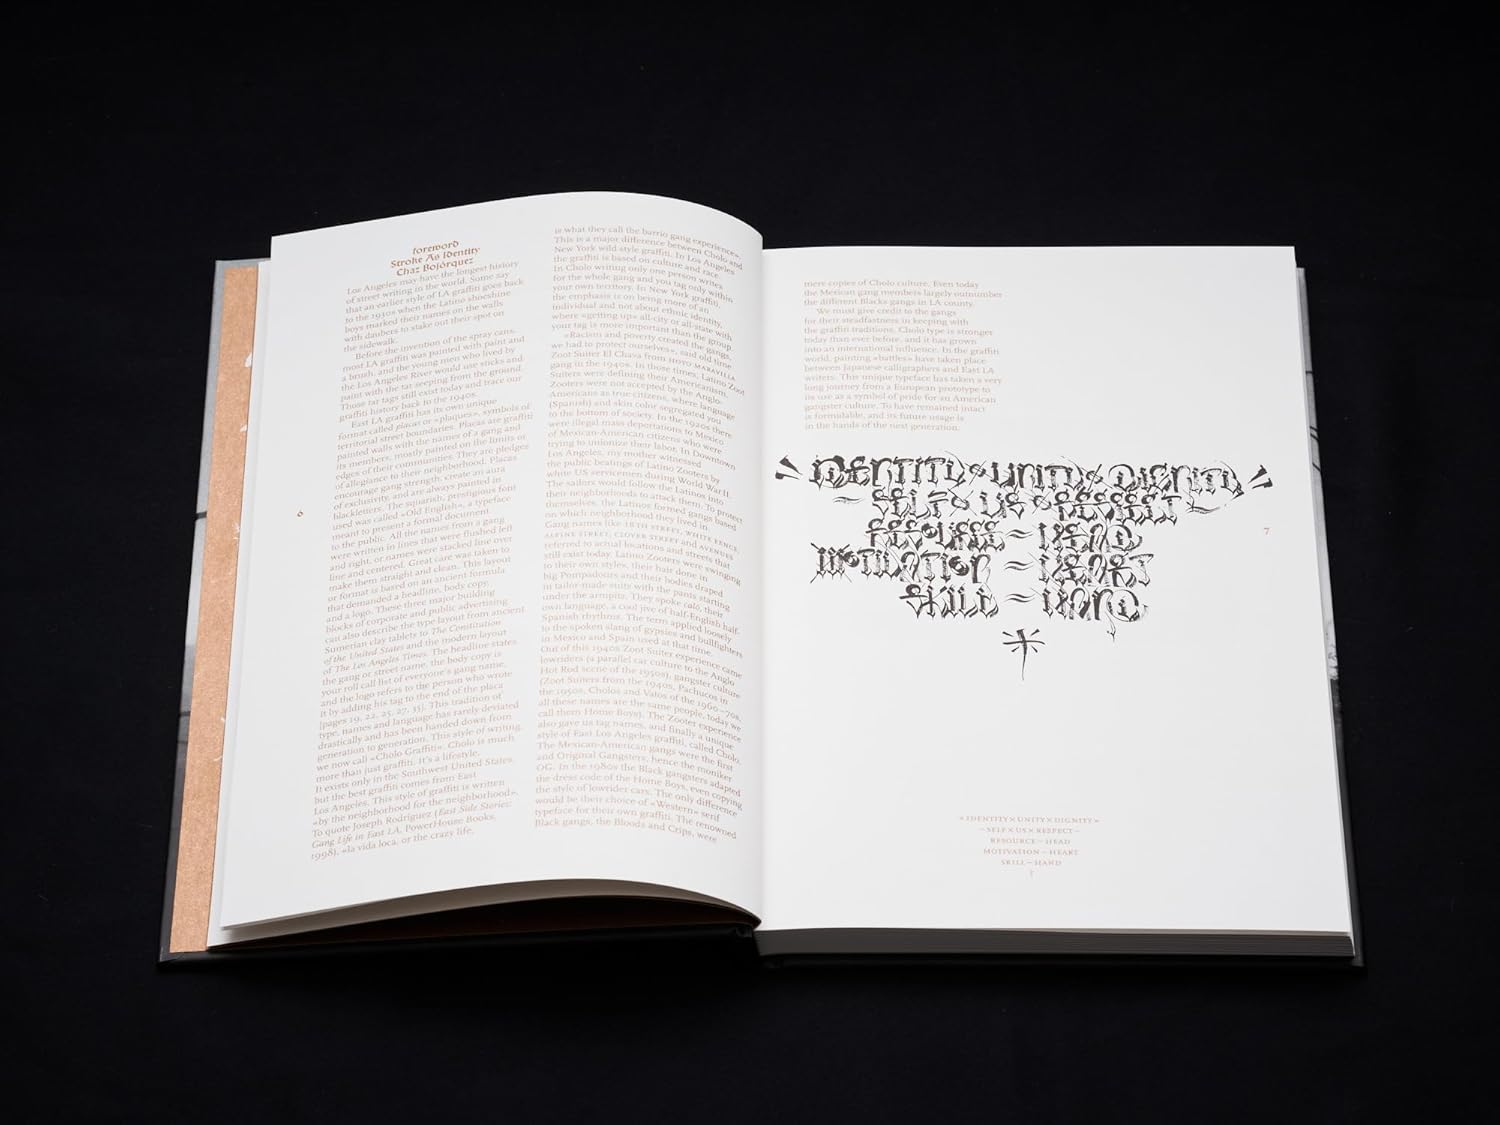 foreword
Stroke As Identity
Chaz Bojórquez
Los Angeles may have the longest history
of street writing in the world. Some say
that an earlier style of LA graffiti goes back
to the 1930s when the Latino shoeshine
boys marked their names on the walls
with daubers to stake out their spot on
the sidewalk.
Before the invention of the spray cans,
most LA graffiti was painted with paint and
a brush, and the young men who lived by
the Los Angeles River would use sticks and
paint with the tar seeping from the ground.
Those tar tags still exist today and trace our
graffiti history back to the 1940s.
East LA graffiti has its own unique
format called placas or «plaques», symbols of
territorial street boundaries. Placas are graffiti
painted walls with the names of a gang and
its members, mostly painted on the limits or
edges of their communities. They are pledges
of allegiance to the neighborhood. Placas
encourage gang strength, create an aura
of exclusivity, and are always painted in
blackletters. The squarish, prestigious font
used was called «Old English», a typeface
meant to present a formal document
to the public. All the names from a gang
were written in lines that were flushed left
and right, or names were stacked line over
line and centered. Great care was taken to
make them straight and clean. This layout
or format is based on an ancient formula
that demanded a headline, body copy,
and a logo. These three major building
blocks of corporate and public advertising
can also describe the type layout from ancient
Sumerian clay tablets to The Constitution
of the United States and the modern layout
of The Los Angeles Times. The headline states
the gang or street name, the body copy is
your roll call list of everyone's gang name,
and the logo refers to the person who wrote
it by adding his tag to the end of the placa
(pages 19, 22, 25, 27, 35). This tradition of
type, names and language has rarely deviated
drastically and has been handed down from
generation to generation. This style of writing,
we now call «Cholo Graffiti». Cholo is much
more than just graffiti. It's a lifestyle.
It exists only in the Southwest United States,
but the best graffiti comes from East
Los Angeles. This style of graffiti is written
«by the neighborhood for the neighborhood».
To quote Joseph Rodríguez (East Side Stories:
Gang Life in East LA, PowerHouse Books,
1998), «la vida loca, or the crazy life,
6
is what they call the barrio gang experience».
This is a major difference between Cholo and
New York wild style graffiti. In Los Angeles
the graffiti is based on culture and race.
In Cholo writing only one person writes
for the whole gang and you tag only within
your own territory. In New York graffiti,
the emphasis is on being more of an
individual and not about ethnic identity,
where «getting up» all-city or all-state with
your tag is more important than the group.
«Racism and poverty created the gangs,
we had to protect ourselves», said old time
Zoot Suiter El Chava from HOYO MARAVILLA
gang in the 1940s. In those times, Latino Zoot
Suiters were defining their Americanism.
Zooters were not accepted by the Anglo-
Americans as true citizens, where language
(Spanish) and skin color segregated you
to the bottom of society. In the 1920s there
were illegal mass deportations to Mexico
of Mexican-American citizens who were
trying to unionize their labor. In Downtown
Los Angeles, my mother witnessed
the public beatings of Latino Zooters by
white US servicemen during World War II.
The sailors would follow the Latinos into
their neighborhoods to attack them. To protect
themselves, the Latinos formed gangs based
on which neighborhood they lived in.
Gang names like 18TH STREET, WHITE FENCE,
ALPINE STREET, CLOVER STREET and AVENUES
referred to actual locations and streets that
still exist today. Latino Zooters were swinging
to their own styles, their hair done in
big Pompadours and their bodies draped
in tailor-made suits with the pants starting
under the armpits. They spoke calo, their
own language, a cool jive of half-English half-
Spanish rhythms. The term applied loosely
to the spoken slang of gypsies and bullfighters
in Mexico and Spain used at that time.
Out of this 1940s Zoot Suiter experience came
lowriders (a parallel car culture to the Anglo
Hot Rod scene of the 1950s), gangster culture
(Zoot Suiters from the 1940s, Pachucos in
the 1950s, Cholos and Vatos of the 1960–70s,
all these names are the same people, today we
call them Home Boys). The Zooter experience
also gave us tag names, and finally a unique
style of East Los Angeles graffiti, called Cholo.
The Mexican-American gangs were the first
and Original Gangsters, hence the moniker
OG. In the 1980s the Black gangsters adapted
the dress code of the Home Boys, even copying
the style of lowrider cars. The only difference
would be their choice of «Western» serif
typeface for their own graffiti. The renowned
Black gangs, the Bloods and Crips, were
mere copies of Cholo culture. Even today
the Mexican gang members largely outnumber
the different Blacks gangs in LA county.
We must give credit to the gangs
for their steadfastness in keeping with
the graffiti traditions. Cholo type is stronger
today than ever before, and it has grown
into an international influence. In the graffiti
world, painting «battles» have taken place
between Japanese calligraphers and East LA
writers. This unique typeface has taken a very
long journey from a European prototype to
its use as a symbol of pride for an American
gangster culture. To have remained intact
is formidable, and its future usage is
in the hands of the next generation.
IDENTITY × UNITY × DIGNITY
~ SELF × US × RESPECT
RESOURCE ~ HEAD
MOTIVATION ~ HEART
SKILL ~ HAND
7
× IDENTITY × UNITY × DIGNITY ×
~ SELF × US × RESPECT ~
RESOURCE ~ HEAD
MOTIVATION ~ HEART
SKILL ~ HAND